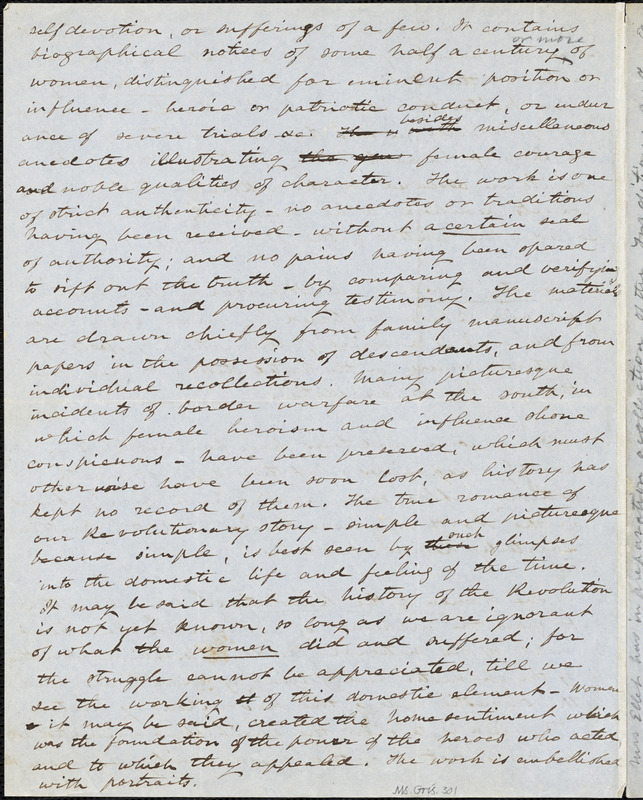 self devotion, or sufferings of a few. It contains
or more
biographical notices of some half a century of
women, distinguished for eminent position or
influence - heroic or patriotic conduct, or endur
ance of severe trials &c. besides miscellaneous
anecdotes illustrating the female courage
and noble qualities of character. The work is one
of strict authenticity - no anecdotes or traditions
having been received - without a certain seal
of authority; and no pains having been spared
to sift out the truth - by comparing and verifying
accounts - and procuring testimony. The materials
are drawn chiefly from family manuscript
papers in the possession of descendants, and from
individual recollections. Many picturesque
incidents of border warfare at the south, in
which female heroism and influence shone
conspicuous - have been preserved, which must
otherwise have been soon lost, as history has
kept no record of them. The true romance of
our Revolutionary story - simple and picturesque
because simple, is best seen by such glimpses
into the domestic life and feeling of the time.
It may be said that the history of the Revolution
is not yet known, so long as we are ignorant
of what the women did and suffered; for
the struggle cannot be appreciated, till we
see the working of this domestic element - Women
it may be said, created the home sentiment which
was the foundation of the power of the heroes who acted,
and to which they appealed. The work is embellished
with portraits.
Ms. Gris. 301